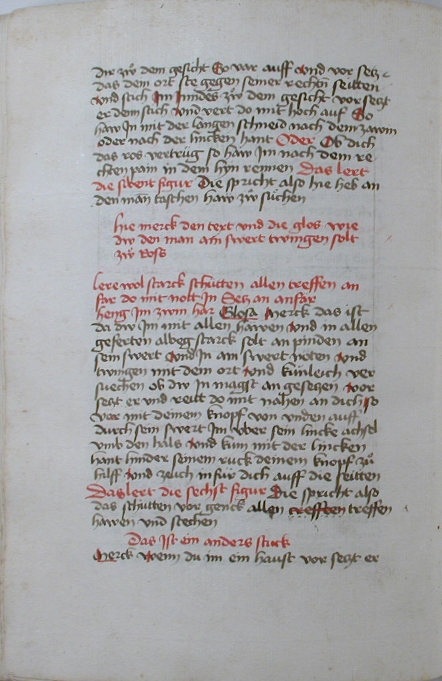 dir zw̄ dem gesicht So var auff vnd vor secz
das dem ort ste gegen seiner rechñ seitten
vnd stich Im Inndes zw̄ dem gesicht vor seczt
er dem stich vnd vert do mit hoch auf So
haw In mit der langen schneid nach dem zawm
oder nach der lincken hant Oder Ob dich
das ros vertrüg so haw Im nach dem re
chten pain in dem hyn rennen Das lert
die sibent figur Die spricht also hie heb an
den man taschen haw zw̄ suchen
hie merck den text vnd die glos wie
dw den man am swert twingen solt
zw̄ Ross
lere wol starck schutten allen treffen an
far do mit nolt In Secz an anfar
heng Im zwm har Glosa Merck das ist
da dw Im mit allen hawen vnd in allen
geferten albeg starck solt an pinden an
sein swert vnd In am swert noten vnd
twingen mit dem ort vnd künleich ver
suechen ob dw In magst an gesehen vor
seczt er vnd reitt do mit nahen an dich so
var mit deinem knopf von vnden auff
durch sein swert Im vber sein lincke achsel
vmb den hals vnd kum mit der lincken
hant hinder seinem ruck deinem knopf zu
hilff vnd zeuch in für dich auff die seitten
Das lert die sechst figur Die spricht also
das schutten vor genck allen treffen treffen
hawen vnd stechen
Das ist ein anders stuck
Merck wenn du im ein haust vor seczt er